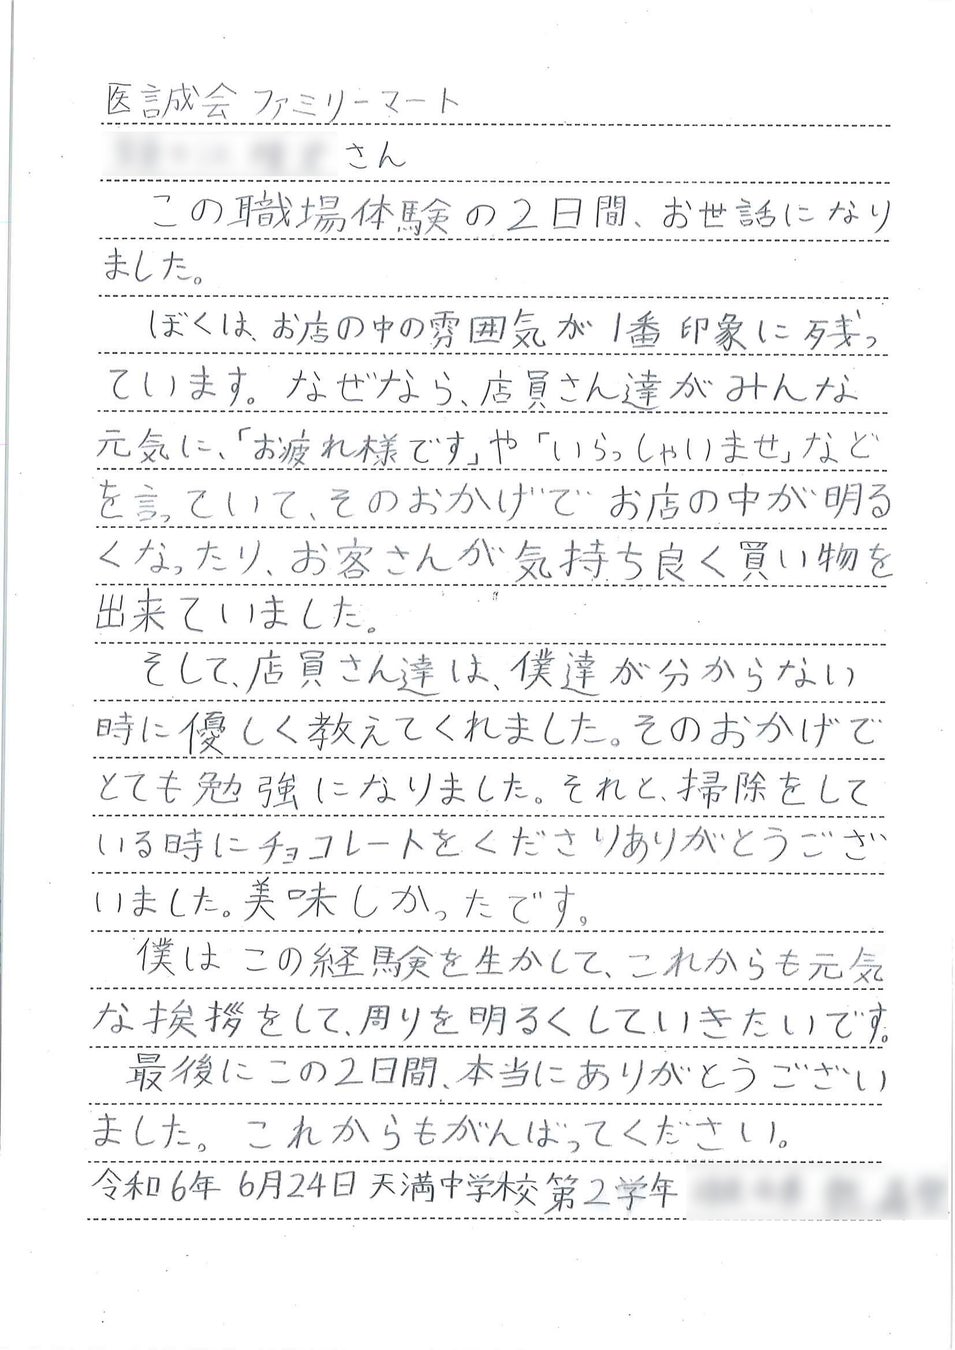 医誠会 ファミリーマート
さん
この職場体験の2日間、お世話になり
ました。
ぼくは、お店の中の雰囲気が1番印象に残っ
ています。なぜなら、店員さん達がみんな
元気に、「お疲れ様です」や「いらっしゃいませ」など
を言っていて、そのおかげでお店の中が明る
くなったり、お客さんが気持ち良く買い物を
出来ていました。
そして、店員さん達は、僕達が分からない
時に優しく教えてくれました。そのおかげで
とても勉強になりました。それと、掃除をして
いる時にチョコレートをくださりありがとうござ
いました。美味しかったです。
僕はこの経験を生かして、これからも元気
な挨拶をして、周りを明るくしていきたいです。
最後にこの2日間、本当にありがとうござい
ました。これからもがんばってください。
令和6年 6月24日 天満中学校 第2学年